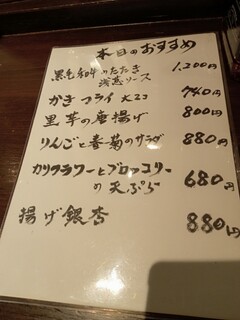 本日のおすすめ
黒毛和牛のたたき 1,200円
浅葱ソース
かきフライ 大2コ 740円
里芋の唐揚げ 800円
りんごと春菊のサラダ 880円
カリフラワーとブロッコリー
の天ぷら 680円
揚げ銀杏 880円